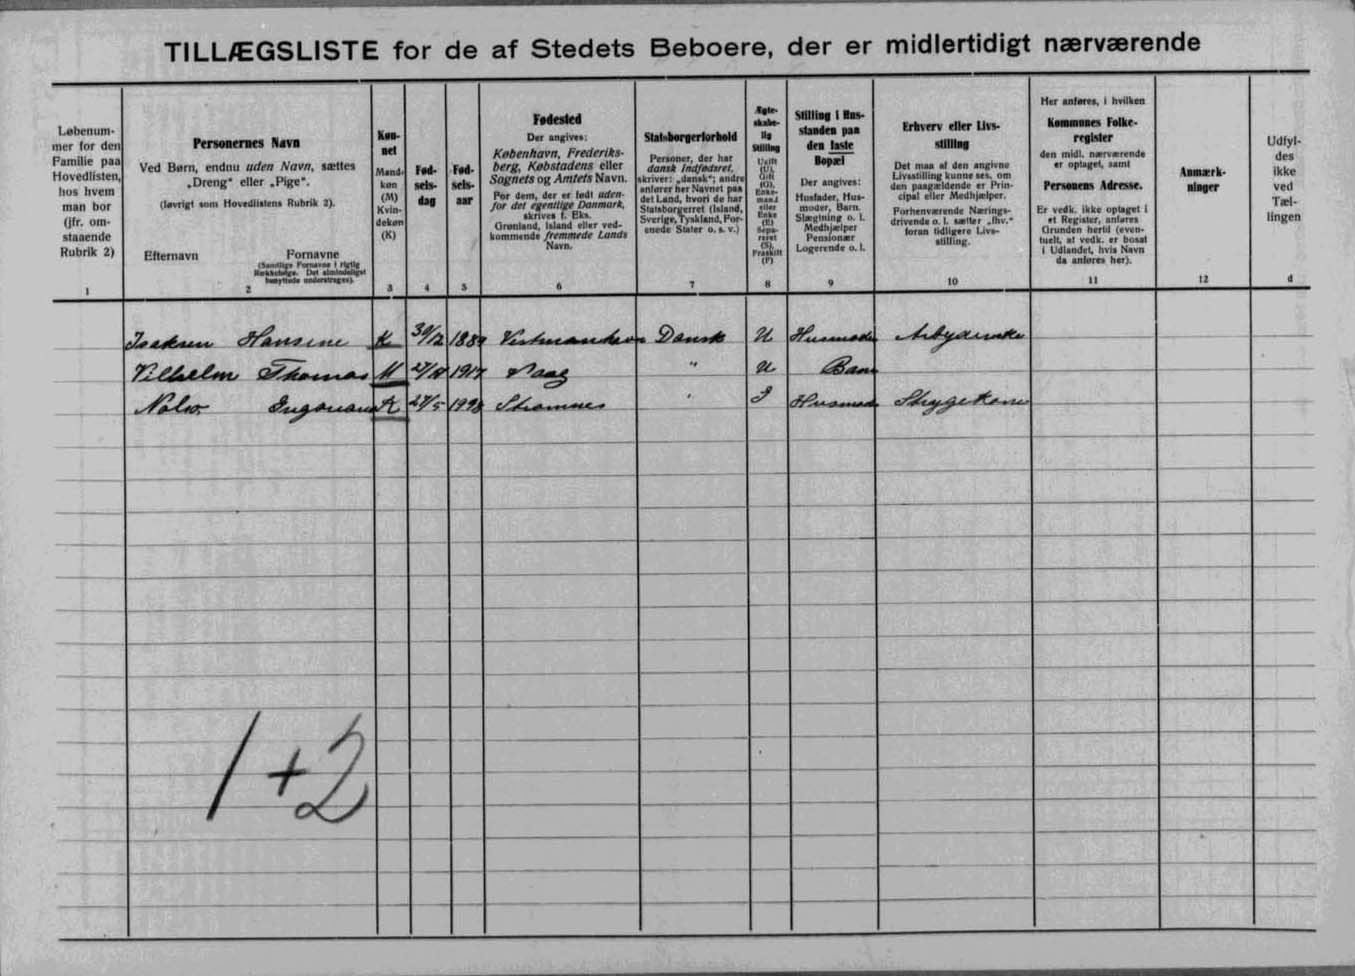 TILLÆGSLISTE for de af Stedets Beboere, der er midlertidigt nærværende
Løbenum-
mer for den
Familie paa
Hovedlisten,
hos hvem
man bor
(jfr. om-
staaende
Rubrik 2)
1
Personernes Navn
Ved Børn, endnu uden Navn, sættes
„Dreng“ eller „Pige“.
(Iøvrigt som Hovedlistens Rubrik 2).
Efternavn Fornavne
(Samtlige Fornavne i rigtig
Rækkefølge. Det almindeligst
benyttede understreges).
2
Køn-
net
Mand-
køn
(M)
Kvin-
dekøn
(K)
3
Fød-
sels-
dag
4
Fød-
sels-
aar
5
Fødested
Der angives:
København, Frederiks-
berg, Købstadens eller
Sognets og Amtets Navn.
For dem, der er født uden-
for det egentlige Danmark,
skrives f. Eks.
Grønland, Island eller ved-
kommende fremmede Lands
Navn.
6
Statsborgerforhold
Personer, der har
dansk Indfødsret,
skriver: „dansk“; andre
anfører her Navnet paa
det Land, hvori de har
Statsborgerret (Island,
Sverige, Tyskland, For-
enede Stater o. s. v.)
7
Ægte-
skabe-
lig
Stilling
Ugift
(U),
Gift
(G),
Enke-
mand
eller
Enke
(E)
Sepa-
reret
(S),
Fraskilt
(F)
8
Stilling i Hus-
standen paa
den faste
Bopæl
Der angives:
Husfader, Hus-
moder, Barn,
Slægtning o. l.
Medhjælper
Pensionær
Logerende o. l.
9
Erhverv eller Livs-
stilling
Det maa af den angivne
Livsstilling kunne ses, om
den paagældende er Prin-
cipal eller Medhjælper.
Forhenværende Nærings-
drivende o. l. sætter „fhv.“
foran tidligere Livs-
stilling.
10
Her anføres, i hvilken
Kommunes Folke-
register
den midl. nærværende
er optaget, samt
Personens Adresse.
Er vedk. ikke optaget i
et Register, anføres
Grunden hertil (even-
tuelt, at vedk. er bosat
i Udlandet, hvis Navn
da anføres her).
11
Anmærk-
ninger
12
Udfyl-
des
ikke
ved
Tæl-
lingen
d
Isaksen Hansine K 30/12 Vestmanhavn Dansk U Husmoder
Vilhelm Thomas M 1917 Vaag " U Barn
Nolsø K 27/5 Strømnes " G Husmod Strygekone
1+2